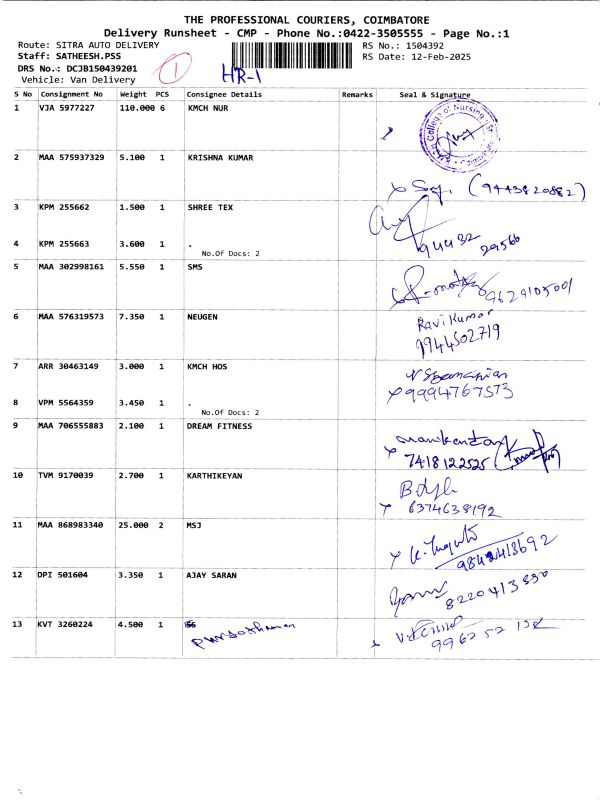 THE PROFESSIONAL COURIERS, COIMBATORE
Delivery Runsheet - CMP - Phone No.:0422-3505555 - Page No.:1
Route: SITRA AUTO DELIVERY
RS No.: 1504392
Staff: SATHEESH.PSS
RS Date: 12-Feb-2025
DRS No.: DCJB150439201
1
HR-1
Vehicle: Van Delivery
S No Consignment No Weight PCS Consignee Details Remarks Seal & Signature
1 VJA 5977227 110.000 6 KMCH NUR
College of Nursing
2 MAA 575937329 5.100 1 KRISHNA KUMAR
(9443820882)
3 KPM 255662 1.500 1 SHREE TEX
4 KPM 255663 3.600 1 .
No.Of Docs: 2
94432 29566
5 MAA 302998161 5.550 1 SMS
9629105001
6 MAA 576319573 7.350 1 NEUGEN
Ravi Kumar
9944502719
7 ARR 30463149 3.000 1 KMCH HOS
9994767573
8 VPM 5564359 3.450 1 .
No.Of Docs: 2
9 MAA 706555883 2.100 1 DREAM FITNESS
manikandan
7418122525
10 TVM 9170039 2.700 1 KARTHIKEYAN
6374638192
11 MAA 868983340 25.000 2 MSJ
9842418692
12 DPI 501604 3.350 1 AJAY SARAN
8220413830
13 KVT 3260224 4.500 1
Pursothaman
99625 52